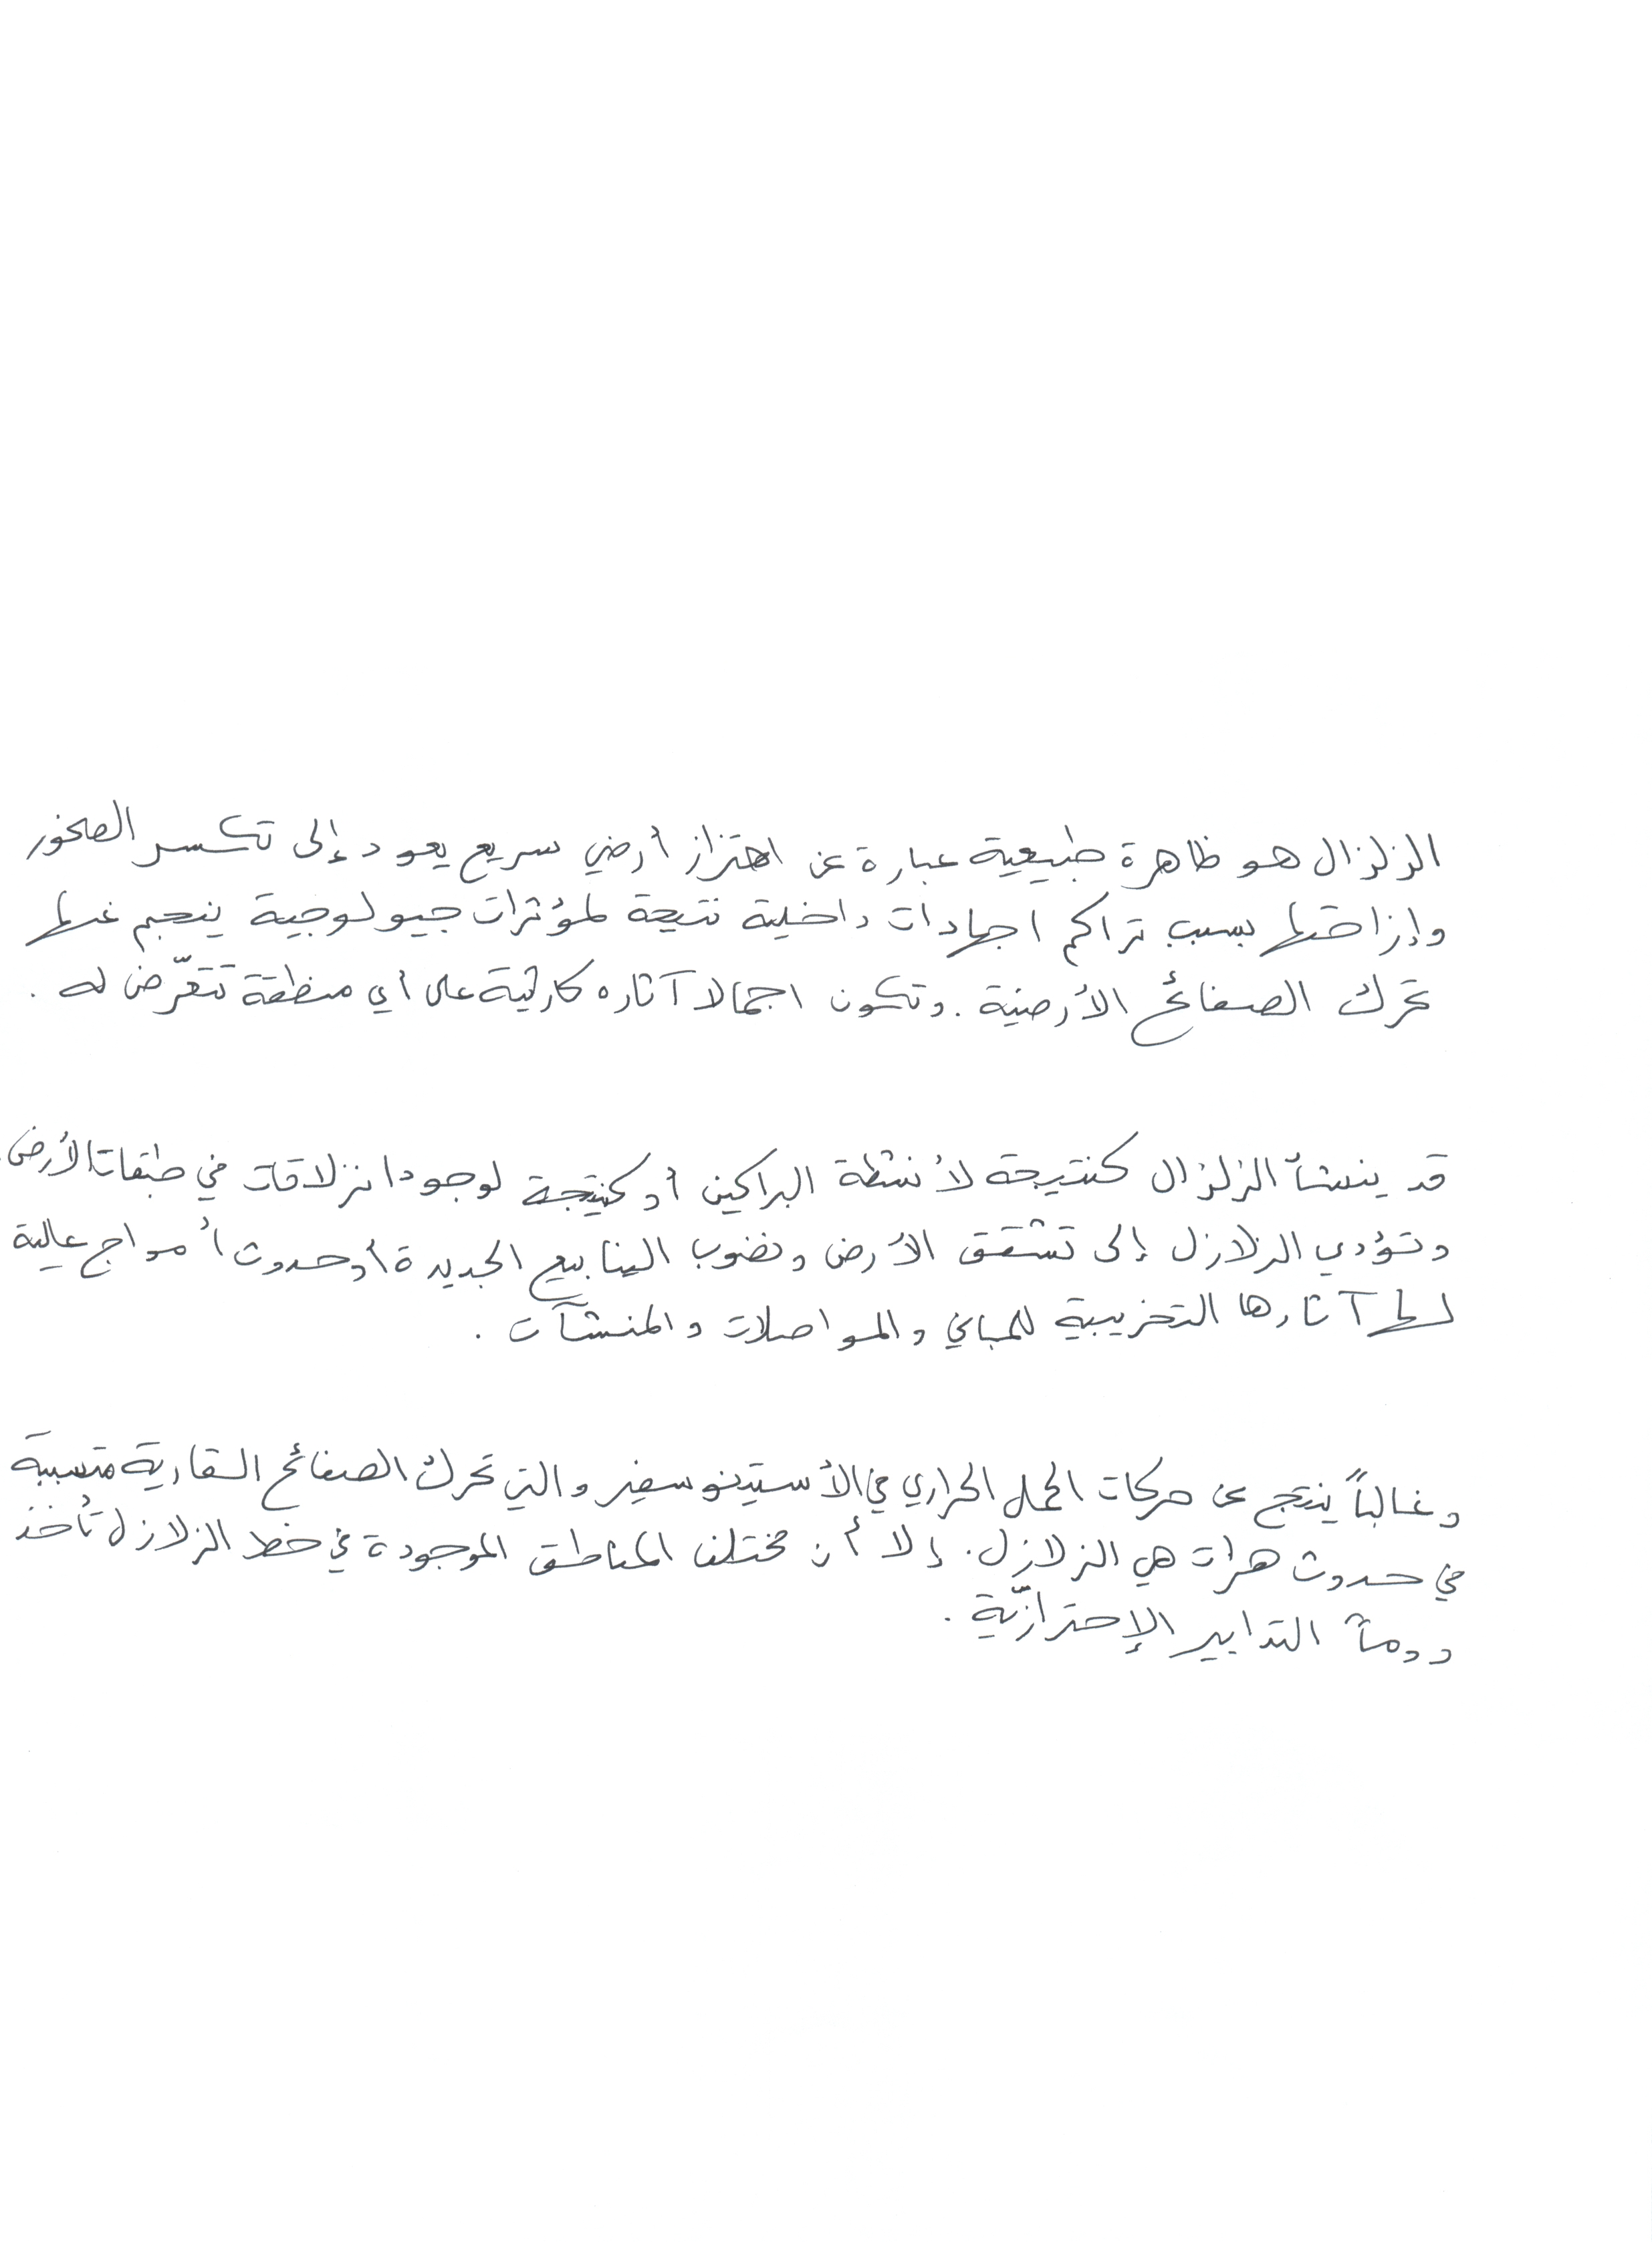 الزلزال هو ظاهرة طبيعية عبارة عن اهتزاز أرضي سريع يعود إلى تكسر الصخور
وإزاحتها بسبب تراكم اجهادات داخلية نتيجة لمؤثرات جيولوجية ينجم عنها
تحرك الصفائح الأرضية. وتكون اجمالا آثاره كارثية على أي منطقة تتعرّض له.
قد ينشأ الزلزال كنتيجة لأنشطة البراكين أو كنتيجة لوجود انزلاقات في طبقات الأرض.
وتؤدي الزلازل إلى تشقق الأرض ونضوب الينابيع الجديدة أو حدوث أمواج عالية
لها آثارها التخريبية للمباني والمواصلات والمنشآت.
وغالباً ينتج عن حركات الحمل الحراري في الأستينوسفير والتي تحرك الصفائح القارية متسببة
في حدوث هزات هي الزلازل. إلا أن مختلف المناطق الموجودة في خط الزلازل تأخذ
دوماً التدابير الإحترازيّة.